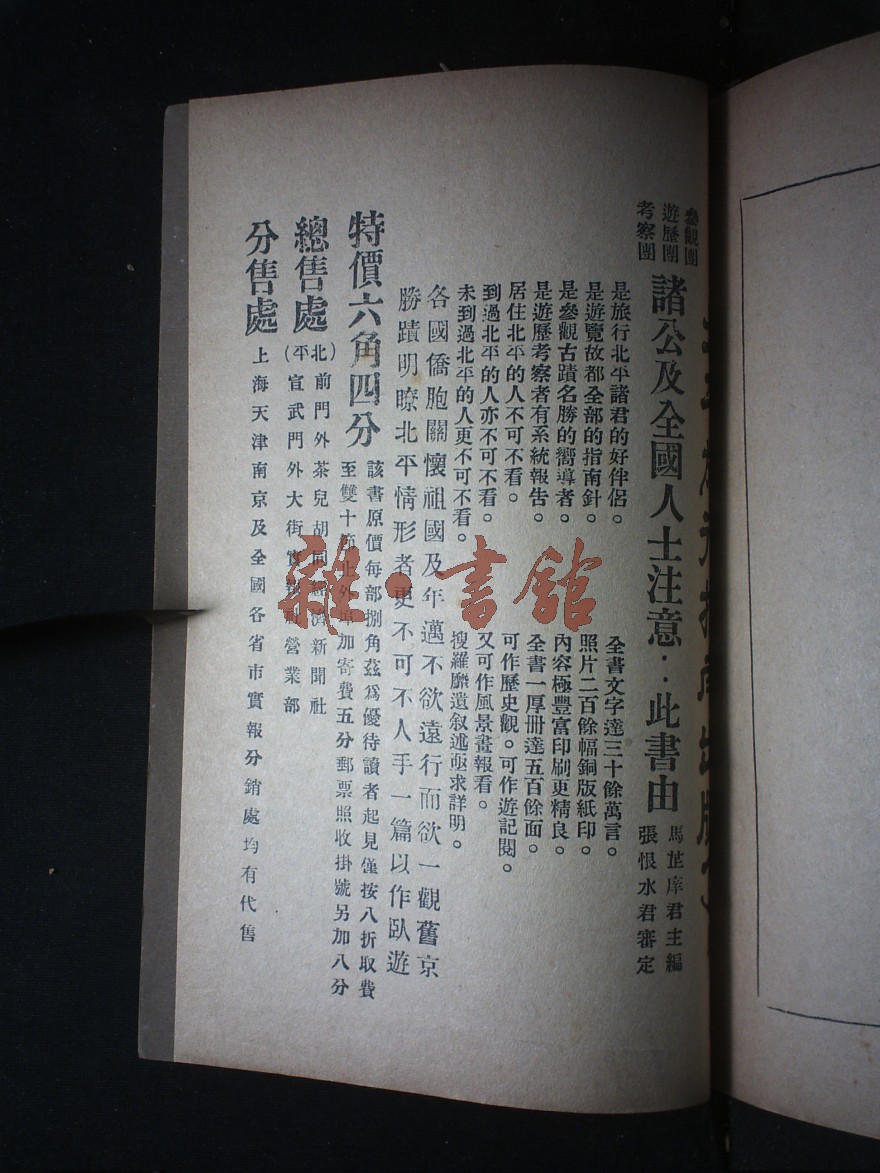 參觀團
遊歷團
考察團
諸公及全國人士注意：此書由
馬芷庠君主編
張恨水君審定
是旅行北平諸君的好伴侶。
是遊覽故都全部的指南針。
是參觀古蹟名勝的嚮導者。
是遊歷考察者有系統報告。
居住北平的人不可不看。
到過北平的人亦不可不看。
未到過北平的人更不可不看。
全書文字達三十餘萬言。
照片二百餘幅銅版紙印。
內容極豐富印刷更精良。
全書一厚冊達五百餘面。
可作歷史觀。可作遊記閱。
又可作風景畫報看。
搜羅靡遺叙述亟求詳明。
各國僑胞關懷祖國及年邁不欲遠行而欲一觀舊京
勝蹟明瞭北平情形者更不可不人手一篇以作臥遊
特價六角四分
該書原價每部捌角茲為優待讀者起見僅按八折取費
至雙十節止外埠加寄費五分郵票照收掛號另加八分
總售處
（北平）
前門外茶兒胡同經濟新聞社
宣武門外大街實報社營業部
分售處
上海天津南京及全國各省市實報分銷處均有代售
雜·書館